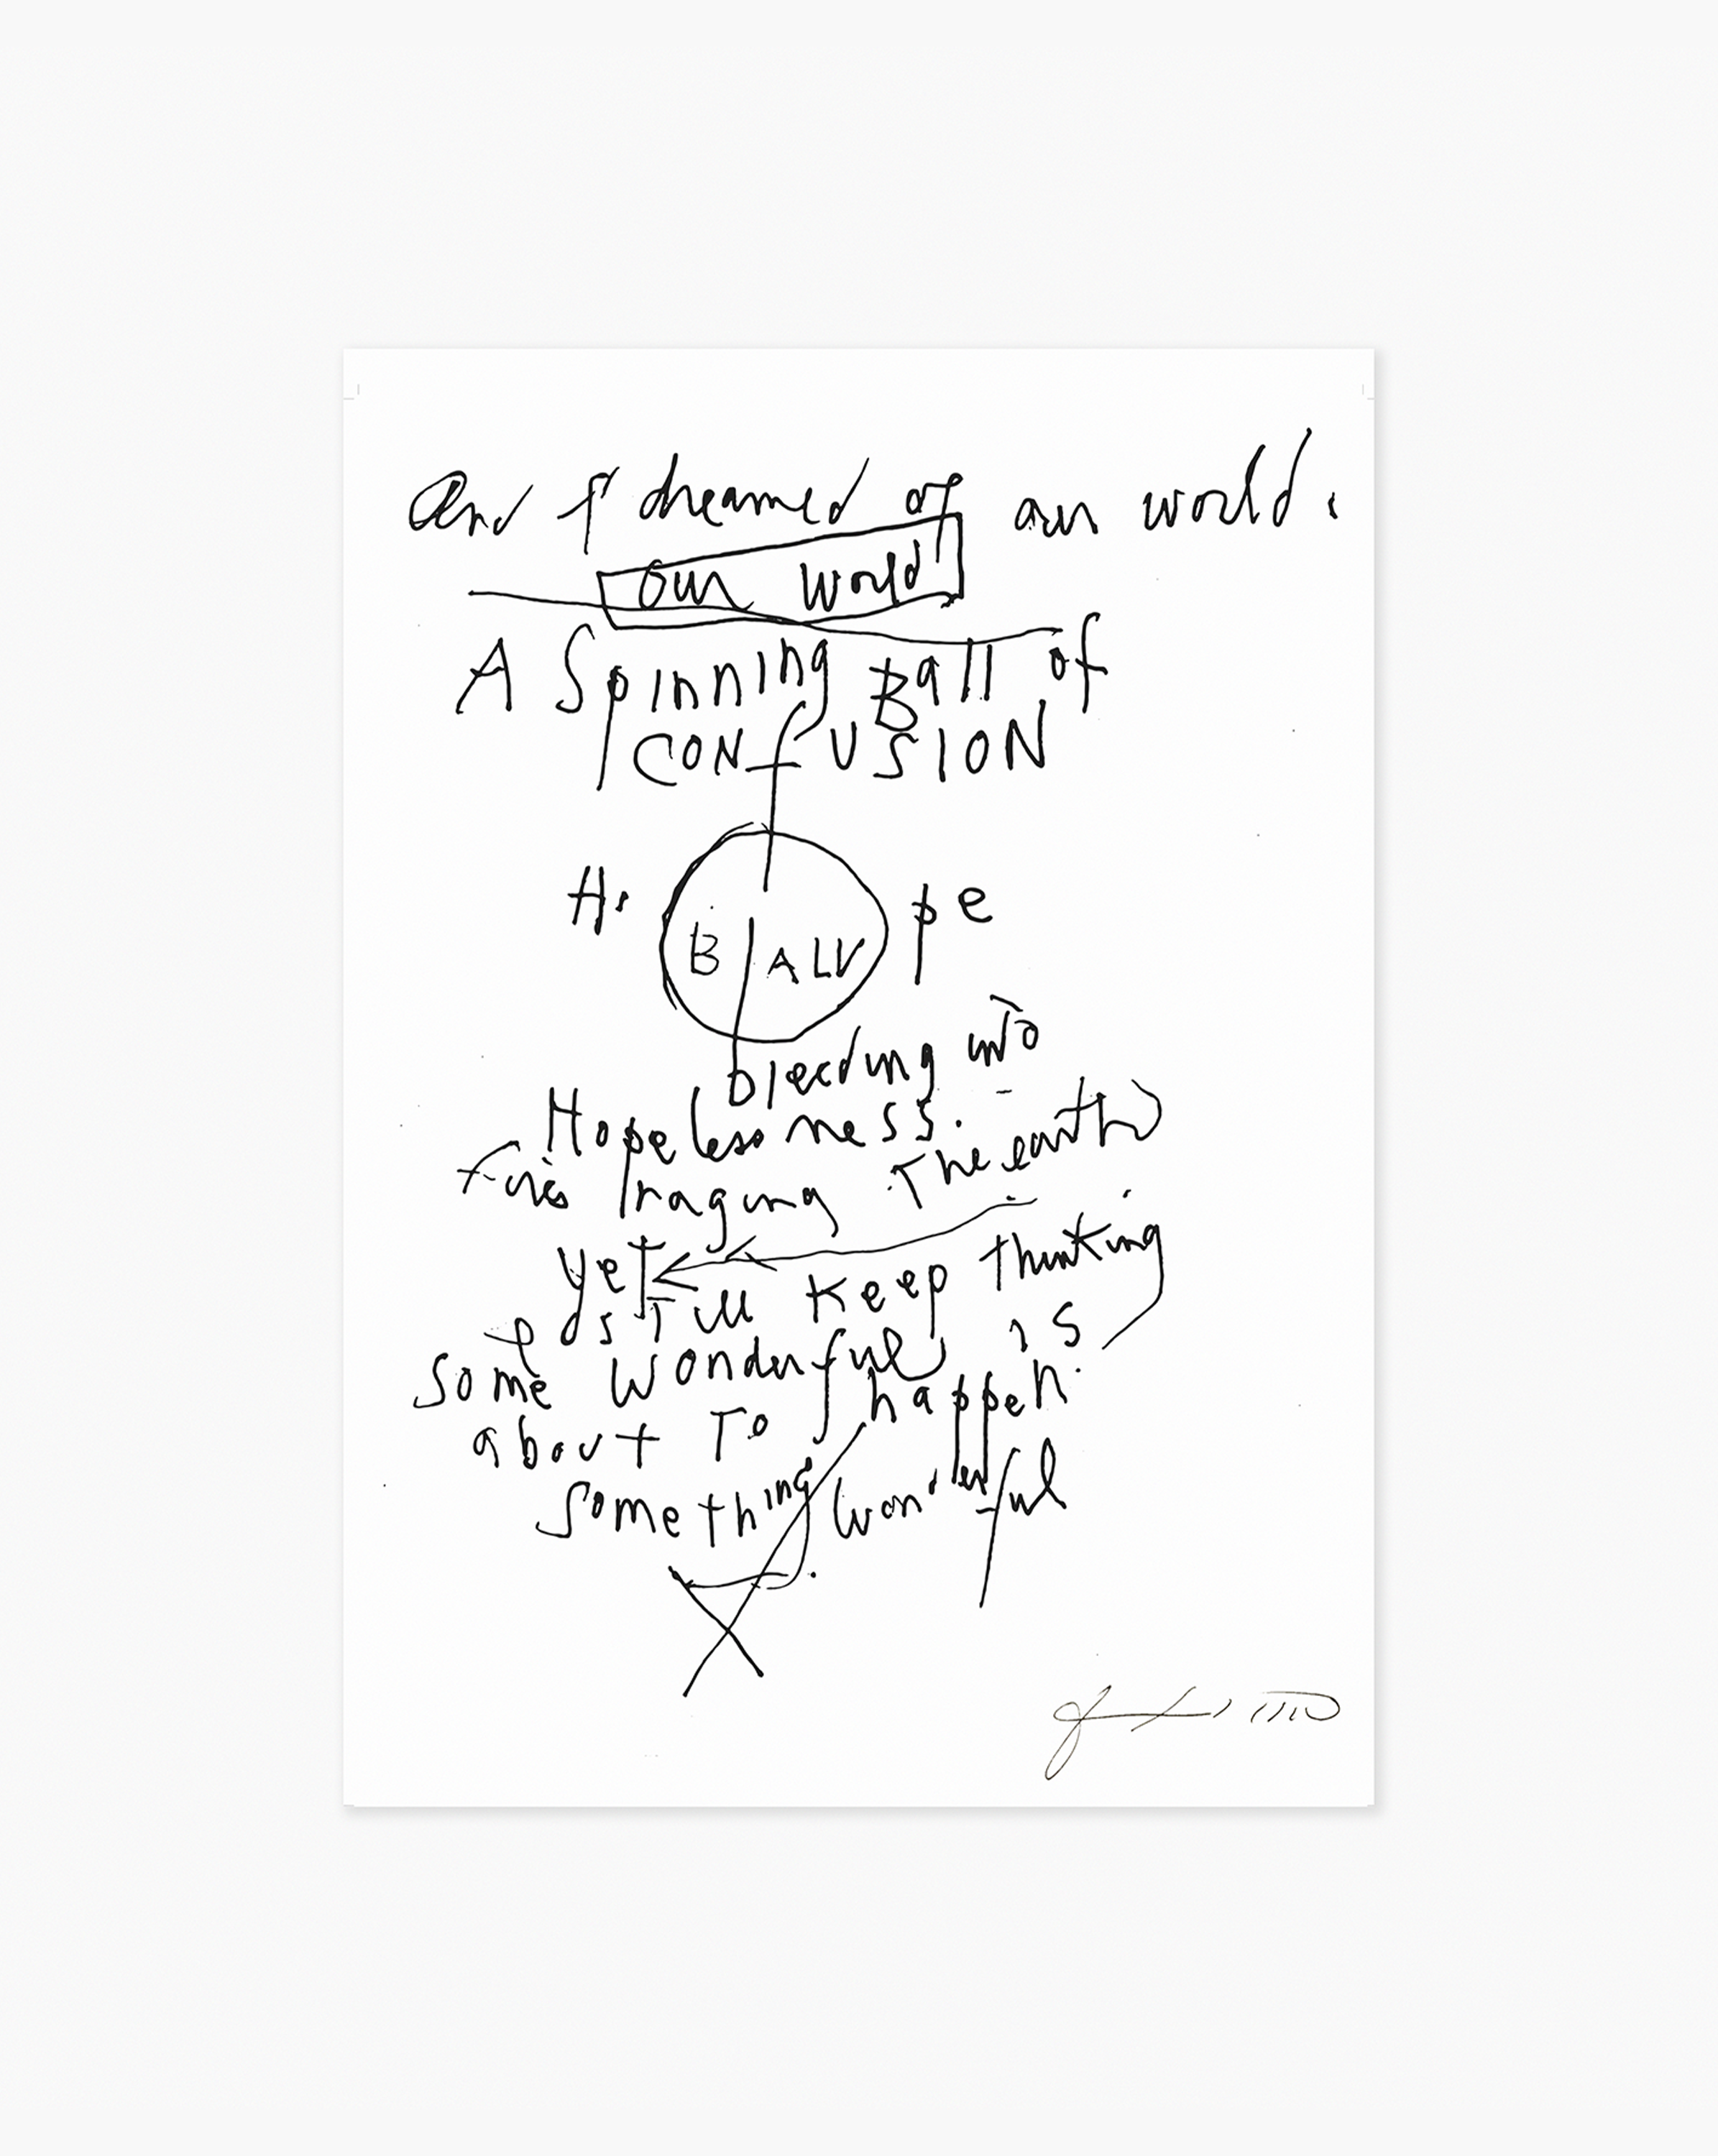 And I dreamed of our world.
our world
A Spinning Ball of
CONfUSION
H. pe
B ALL
bleeding into
Hopelessness.
fires raging The earth
yet
I still keep thinking
some wonderful is
about To happen.
something wonderful